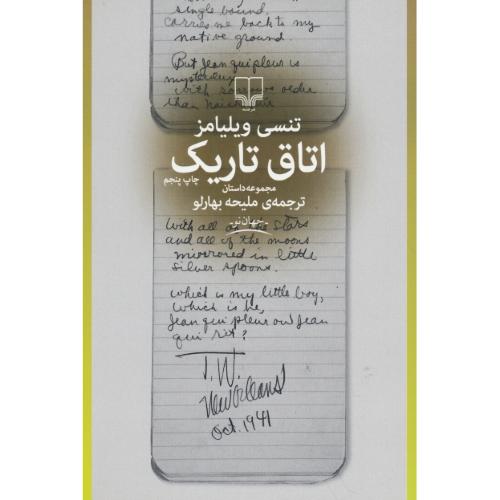 single bound
carries me back to my
native ground.
But Jean qui pleur is
mysterious
with sorrows older
than
چشمه
تنسی ویلیامز
اتاق تاریک
چاپ پنجم
مجموعه داستان
ترجمه‌ی ملیحه بهارلو
جهان‌نو
with all of the stars
and all of the moons
mirrored in little
silver spoons.
which is my little boy,
which is he,
Jean qui pleur ou Jean
qui rit?
T.W.
New Orleans
Oct. 1941